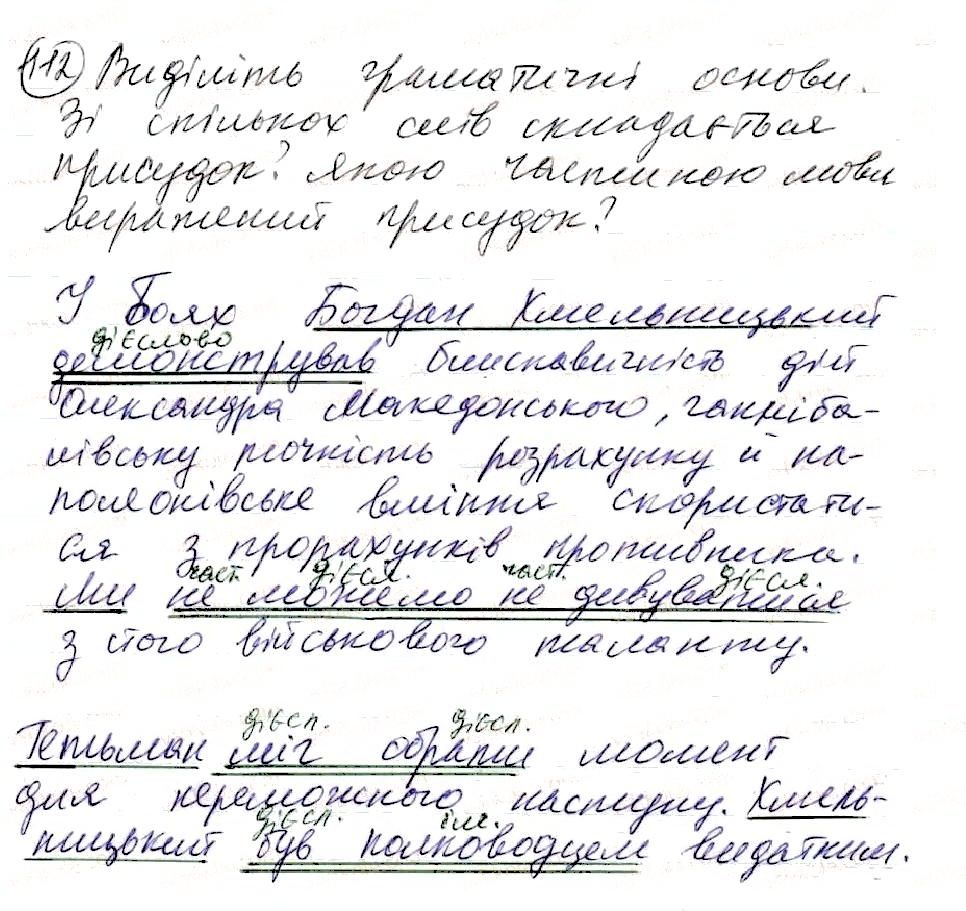 112 Виділіть граматичні основи.
Зі скількох слів складається
присудок? Якою частиною мови
виражений присудок?
У боях Богдан Хмельницький
дієслово
демонстрував блискавичність дій
Олександра Македонського, ганніба-
лівську точність розрахунку й на-
полеонівське вміння скористати-
ся з прорахунків противника.
част. дієсл. част. дієсл.
Ми не можемо не дивуватися
з його військового таланту.
дієсл. дієсл.
Гетьман міг обрати момент
для переможного наступу. Хмель-
дієсл. ім.
ницький був полководцем видатним.